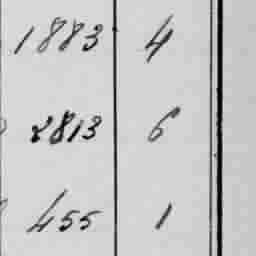 1883 4
2813 6
455 1